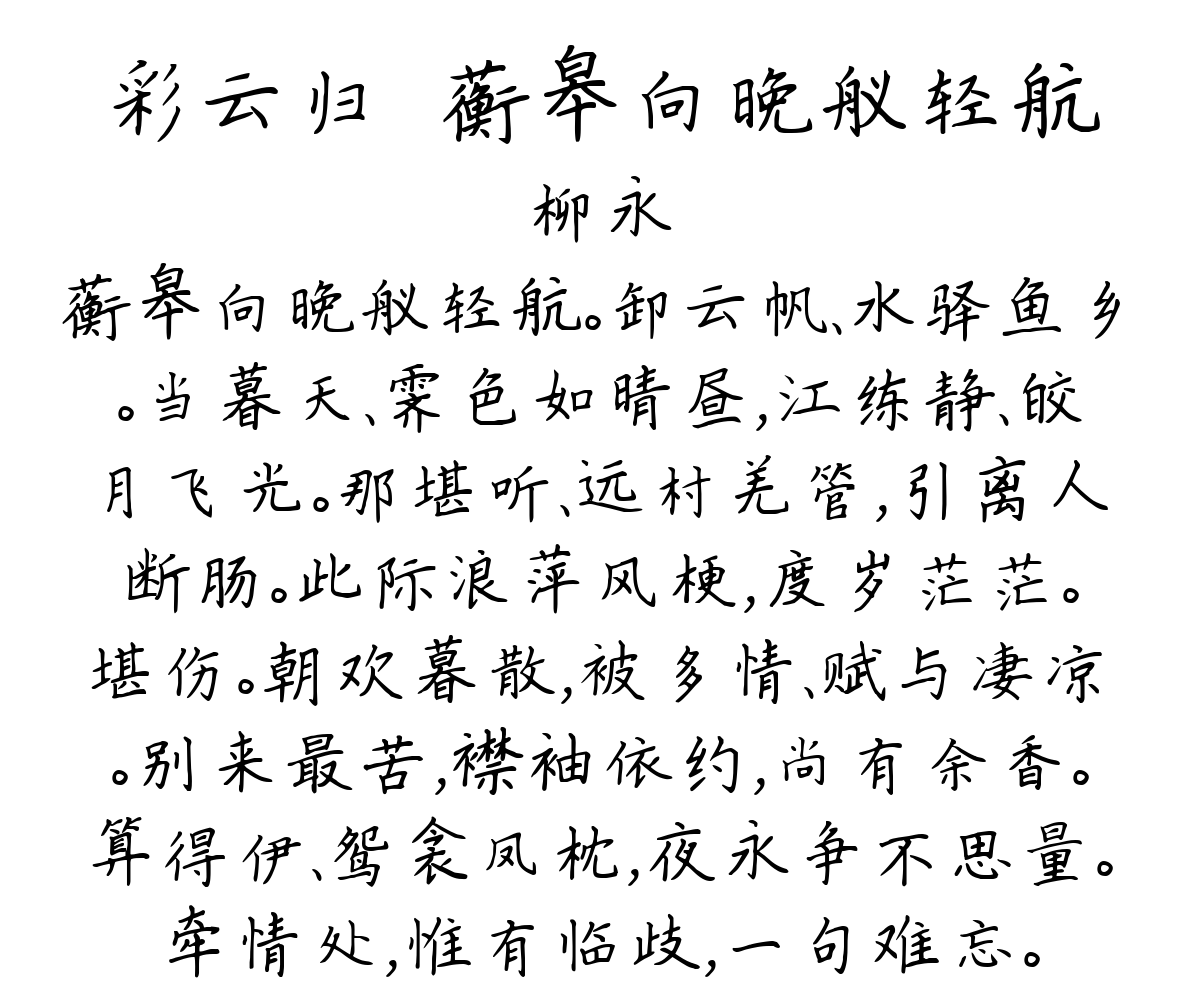 彩云归 蘅皋向晚舣轻航
柳永
蘅皋向晚舣轻航。卸云帆、水驿鱼乡
。当暮天、霁色如晴昼,江练静、皎
月飞光。那堪听、远村羌管,引离人
断肠。此际浪萍风梗,度岁茫茫。
堪伤。朝欢暮散,被多情、赋与凄凉
。别来最苦,襟袖依约,尚有余香。
算得伊、鸳衾凤枕,夜永争不思量。
牵情处,惟有临歧,一句难忘。